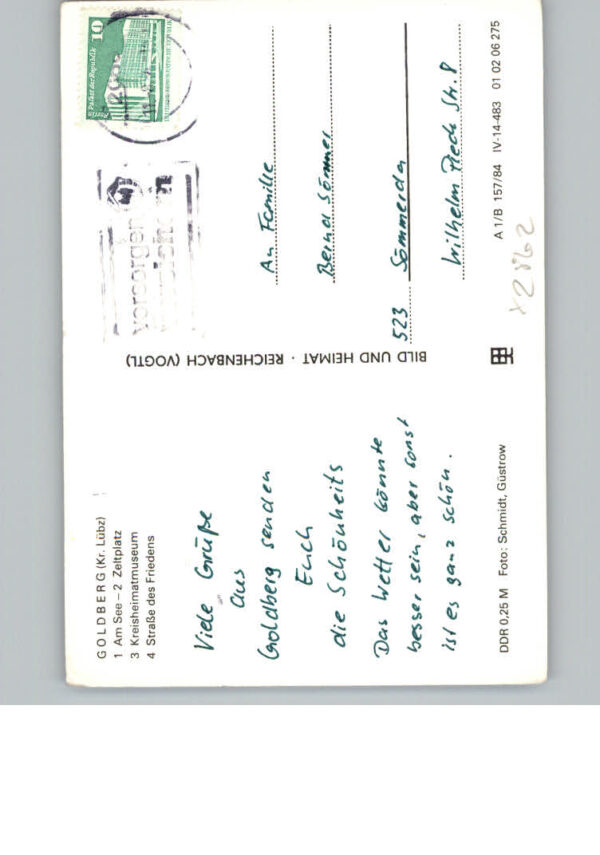 GOLDBERG (Kr. Lübz)
1 Am See – 2 Zeltplatz
3 Kreisheimatmuseum
4 Straße des Friedens
Viele Grüße
aus
Goldberg senden
Euch
die Schönheits
Das Wetter könnte
besser sein, aber sonst
ist es ganz schön.
DDR 0,25 M Foto: Schmidt, Güstrow
BILD UND HEIMAT · REICHENBACH (VOGTL)
10
Palast der Republik
vorsorgen
An Familie
Bernd Sömmer
523 Sömmerda
Wilhelm Pieck Str. 8
A 1/B 157/84 IV-14-483 01 02 06 275